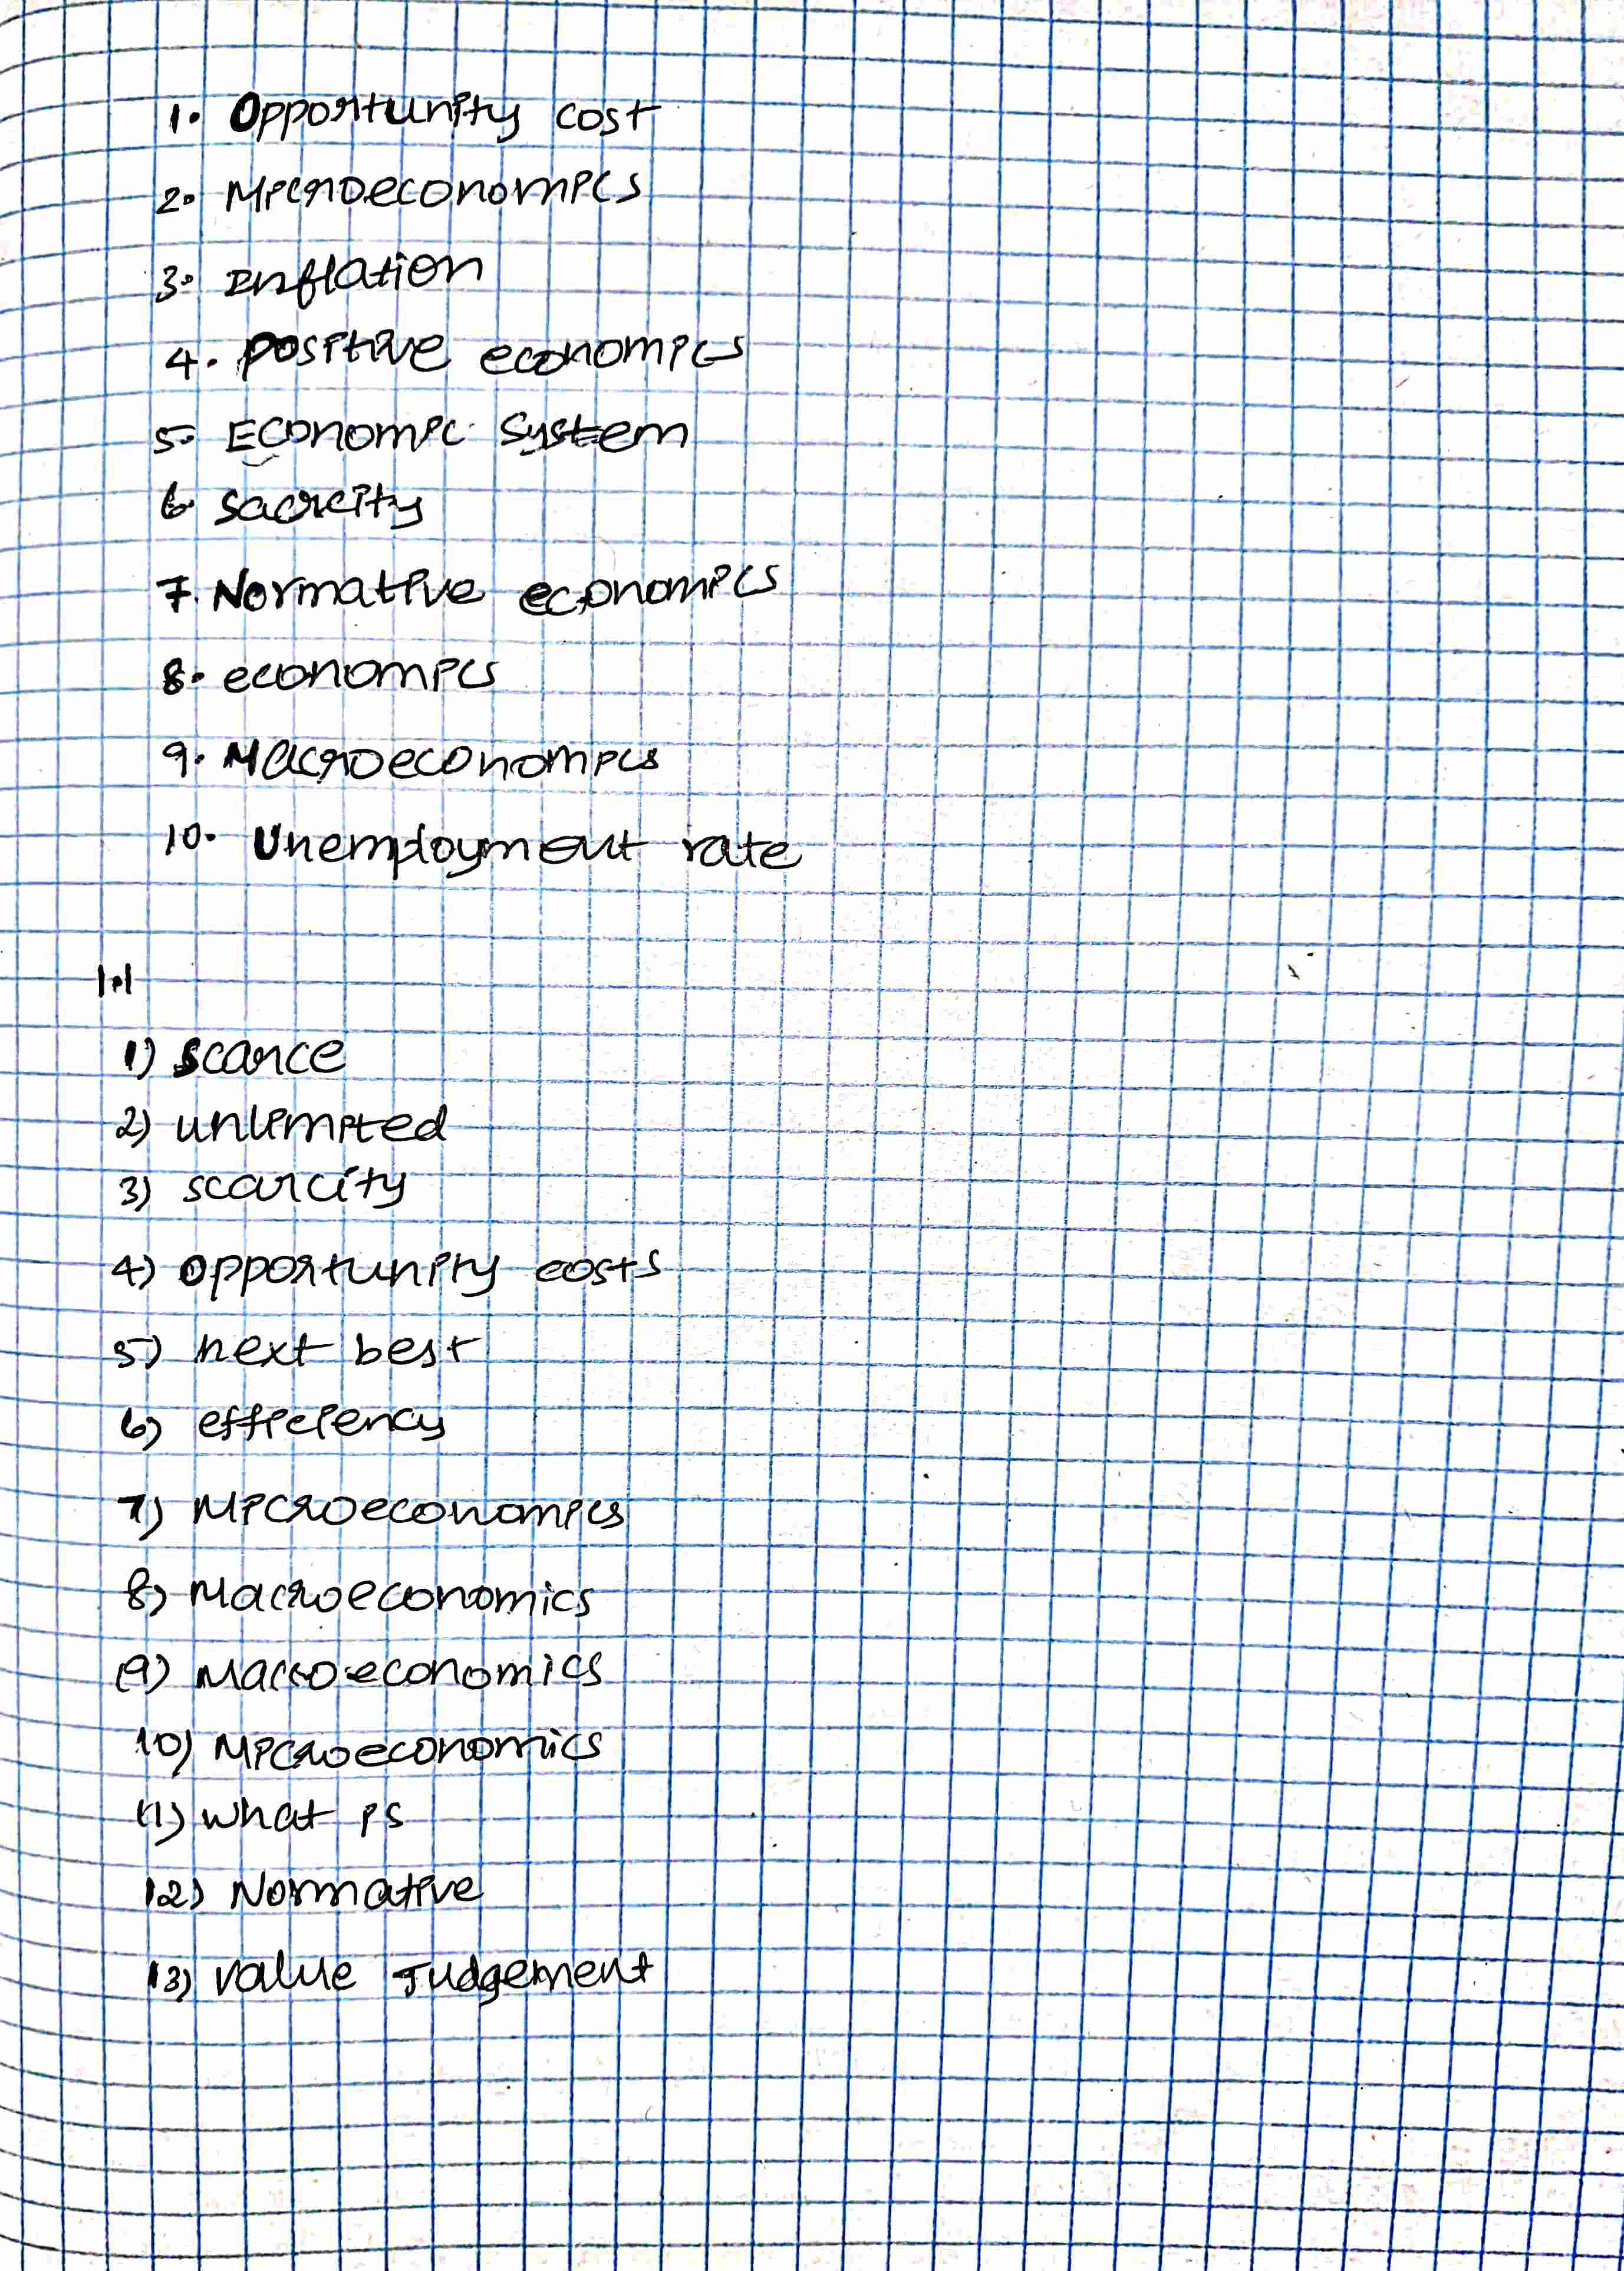 1. Opportunity cost
2. Microeconomics
3. Inflation
4. positive economics
5. Economic System
6. sacrcity
7. Normative economics
8. economics
9. Macroeconomics
10. Unemployment rate
1.1
1) scarce
2) unlimited
3) scarcity
4) opportunity costs
5) next best
6) efficiency
7) Microeconomics
8) Macroeconomics
(9) Macroeconomics
10) Microeconomics
11) what is
12) Normative
13) value Judgement